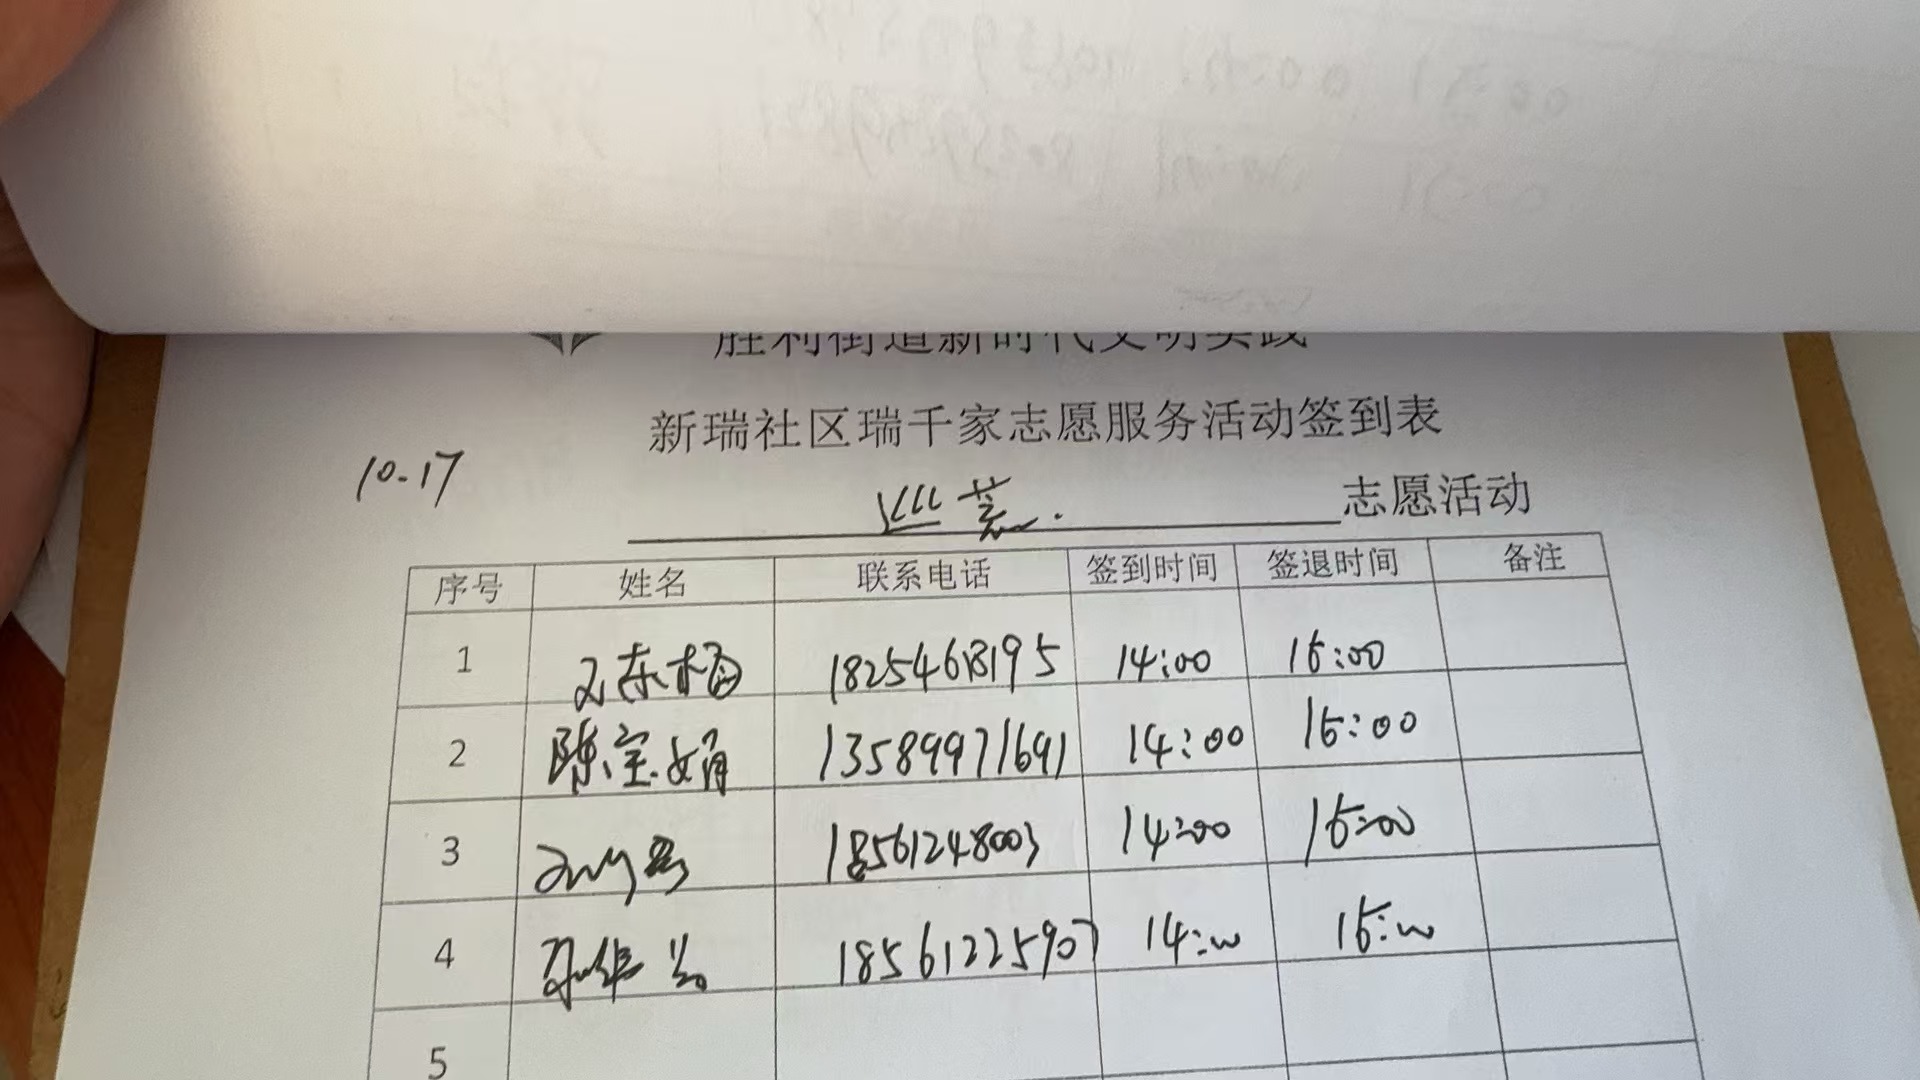 胜利街道新时代文明实践
新瑞社区瑞千家志愿服务活动签到表
10.17
巡黄. 志愿活动
序号 姓名 联系电话 签到时间 签退时间 备注
1 18254613195 14:00 15:00
2 陈宝娟 13589971691 14:00 15:00
3 18561248003 14:00 15:00
4 18561225907 14:00 15:00
5